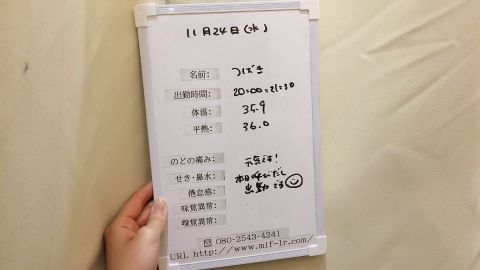 11月24日(水)
名前: つばき
出勤時間: 20:00=21:30
体温: 35.9
平熱: 36.0
のどの痛み: 元気です!
せき・鼻水: 本日呼びだし
倦怠感: 出勤です
味覚異常:
嗅覚異常:
080-2543-4241
URL http://www.mif-lr.com/